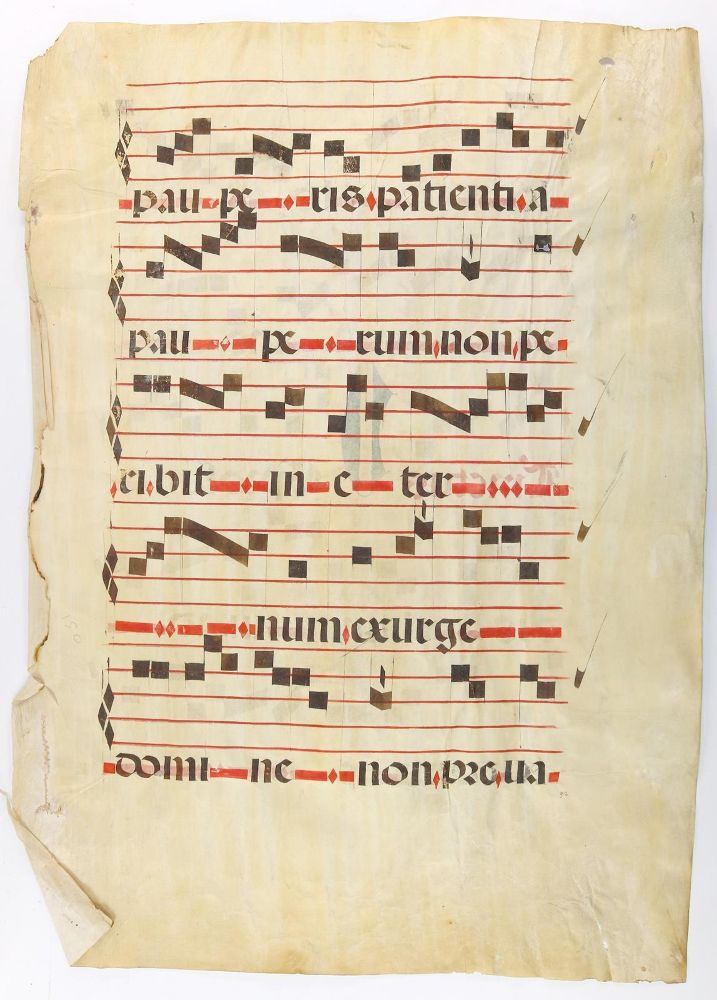 pau pe ris patienti a
pau pe rum non pe
ri bit in e ter
num exurge
domi ne non preua